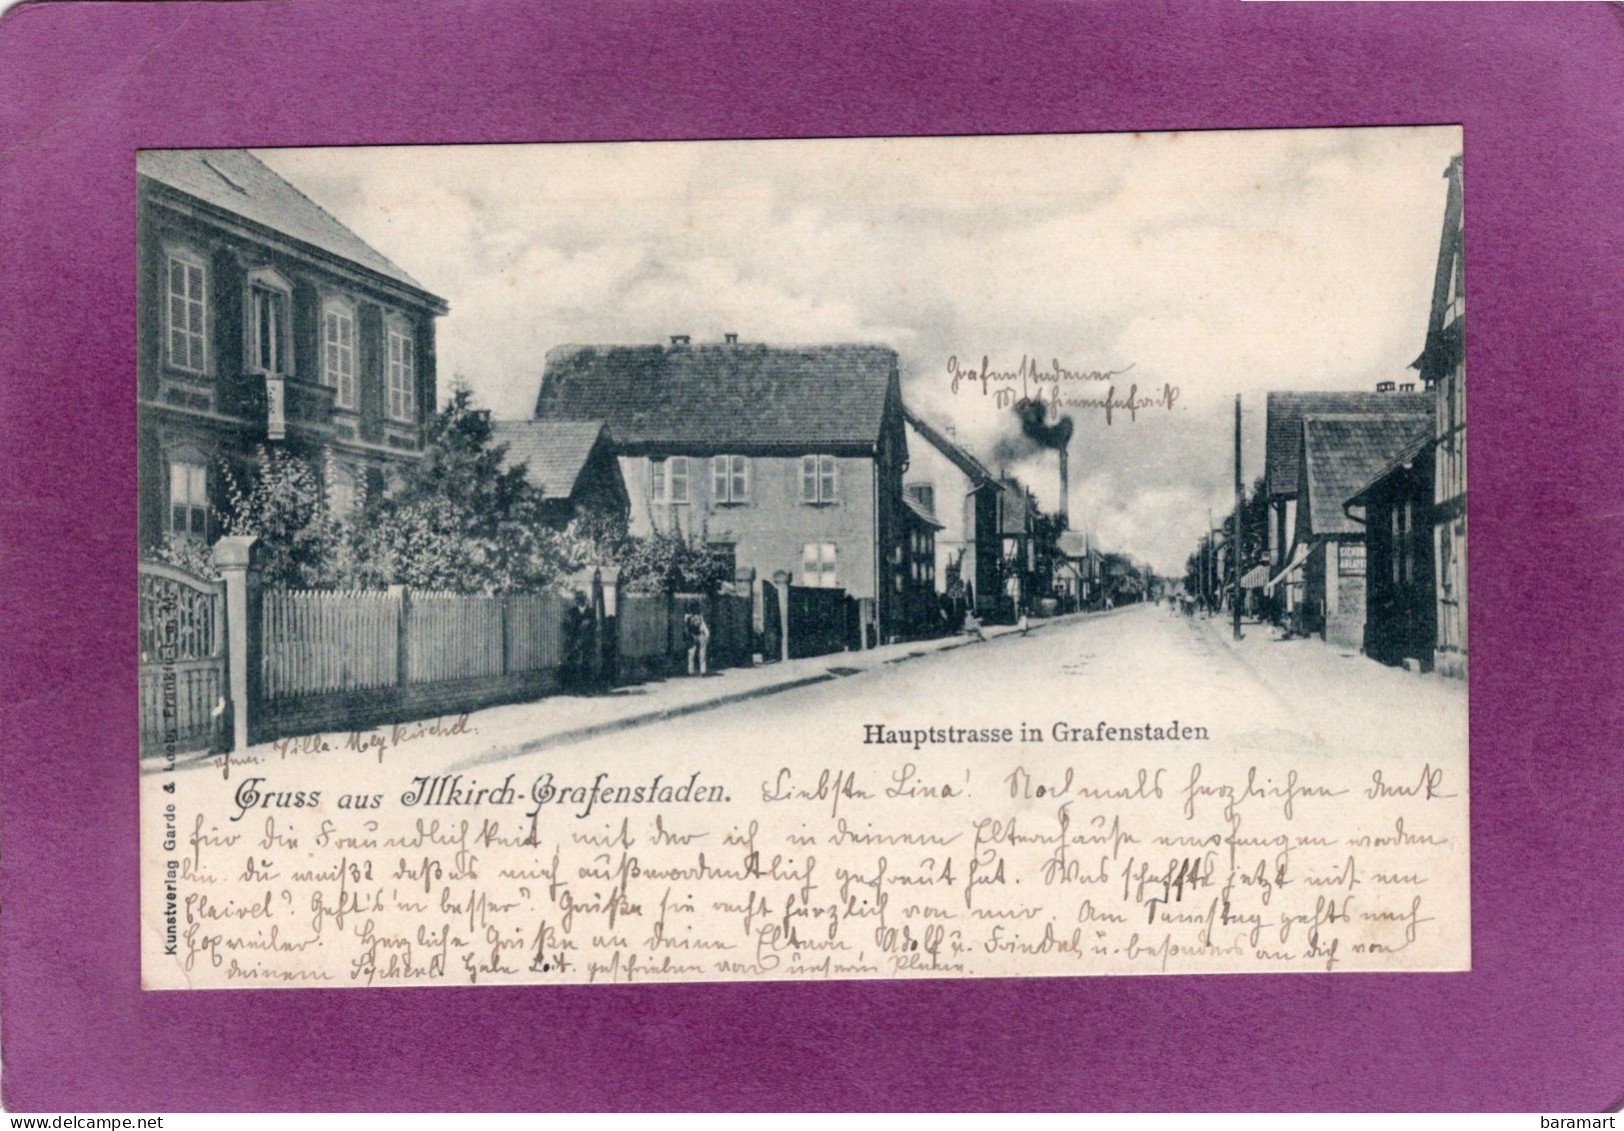 Grafenstadener
Maschinenfabrik
CICHOR
Kunstverlag Garde & Loeb, Frankfurt a. M.
Villa
Hauptstrasse in Grafenstaden
Gruss aus Illkirch-Grafenstaden.
Liebste Lina! Nochmals herzlichen Dank
für die Freundlichkeit, mit der ich in deinem Elternhause empfangen worden
bin. du weißt daß es mich außerordentlich gefreut hat. Was schafft jetzt mit
Geht's besser? Grüße sie recht herzlich von mir. Am Samstag gehts nach
Herzliche Grüße an deine Eltern Adolf u. u. besonders an dich von
deinem geschrieben von
www.delcampe.net
baramart